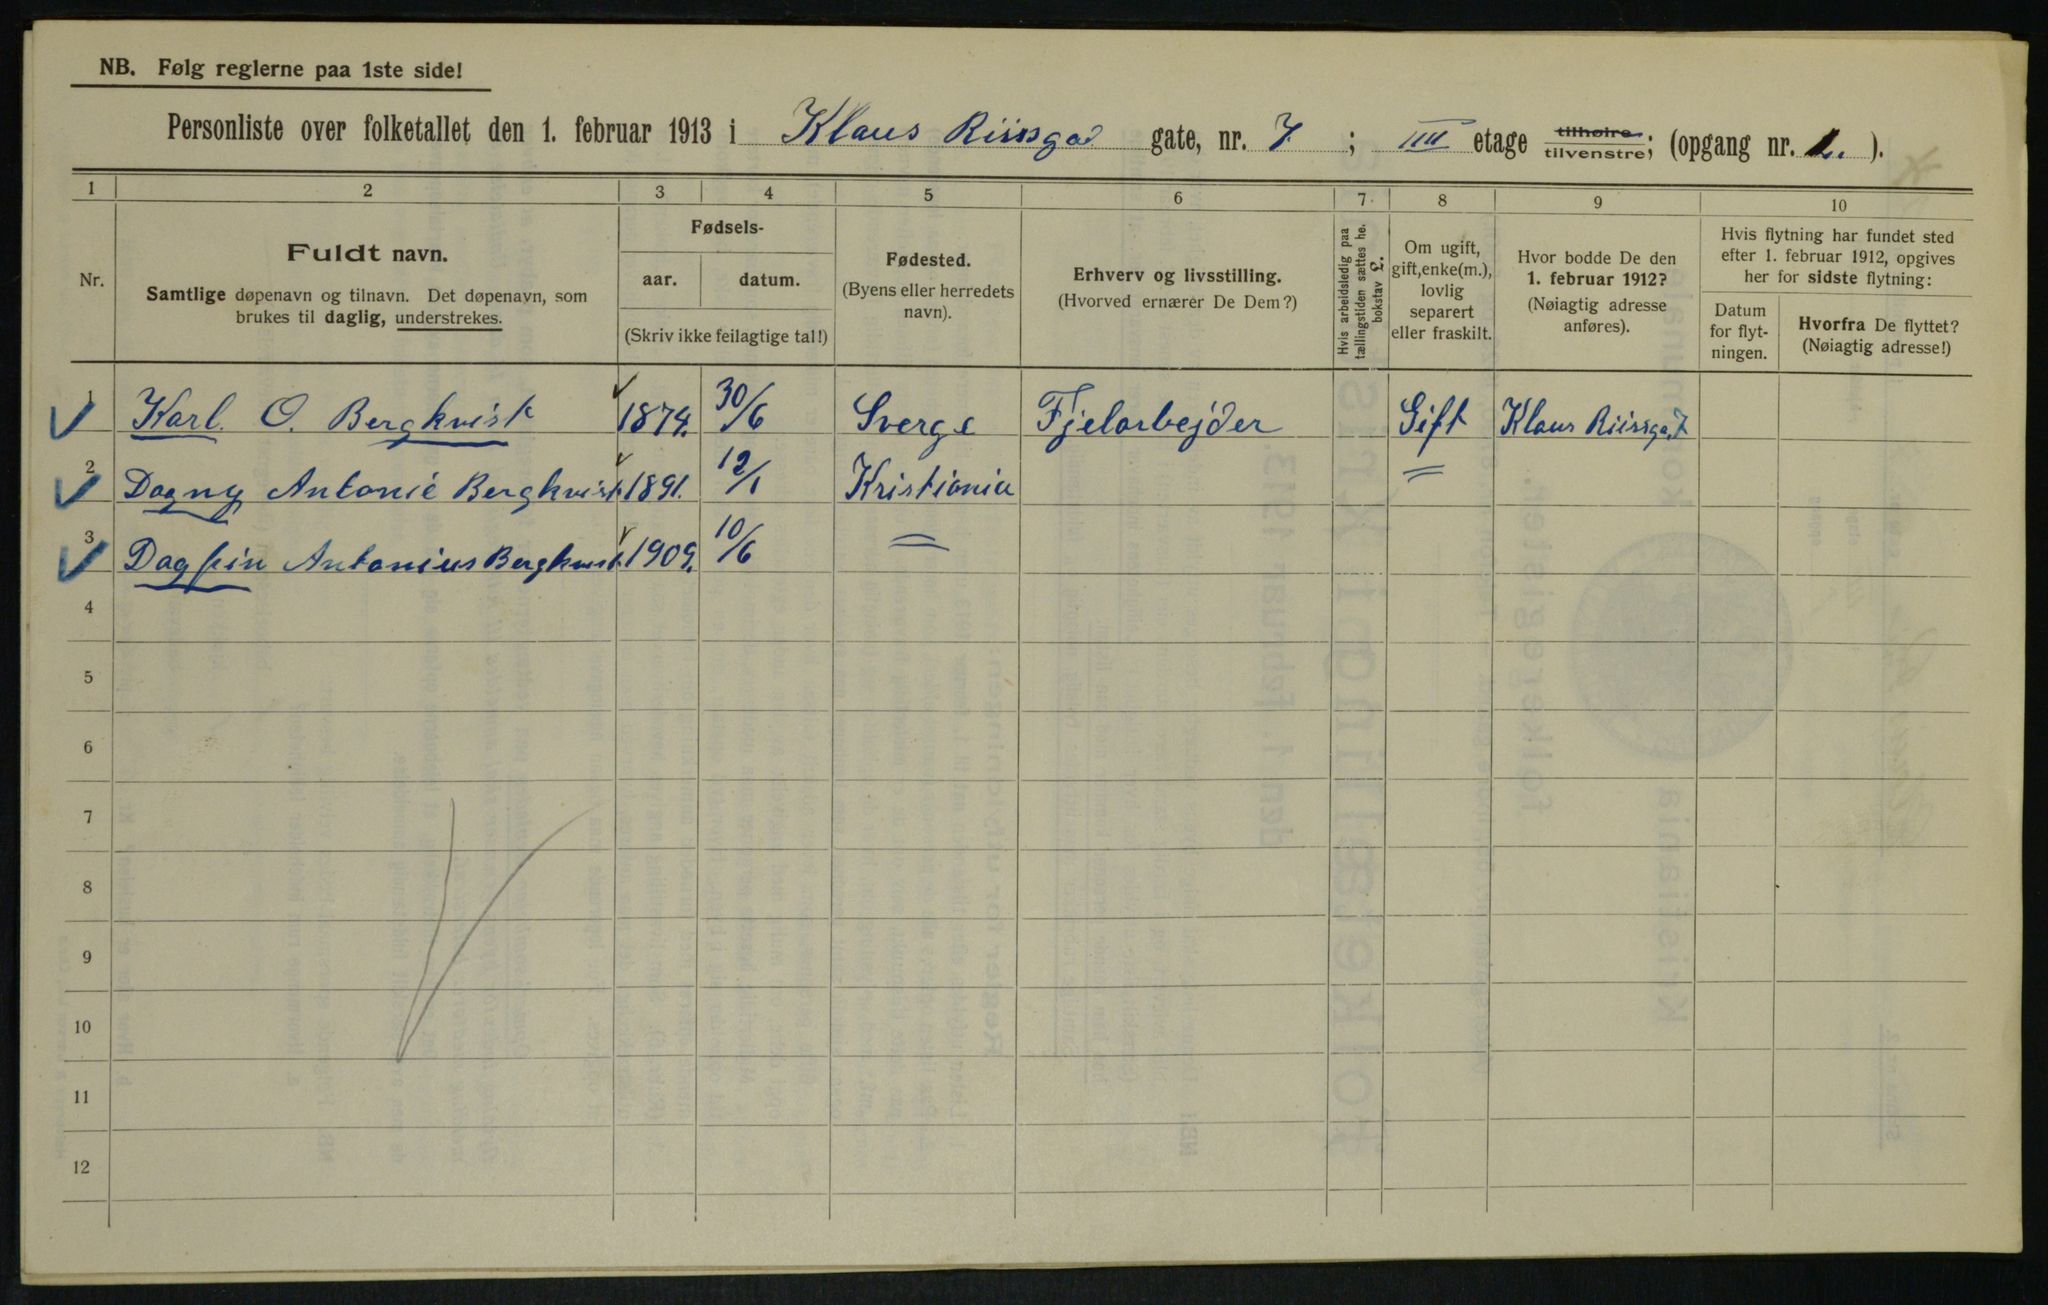 NB. Følg reglerne paa 1ste side!
Personliste over folketallet den 1. februar 1913 i Klaus Riissga gate, nr. 7 ; IIII etage tilhøire tilvenstre; (opgang nr. 2. ).
1 2 3 4 5 6 7 8 9 10
Nr.
Fuldt navn.
Samtlige døpenavn og tilnavn. Det døpenavn, som
brukes til daglig, understrekes.
Fødsels-
aar. datum.
(Skriv ikke feilagtige tal!)
Fødested.
(Byens eller herredets
navn).
Erhverv og livsstilling.
(Hvorved ernærer De Dem?)
Hvis arbeidsledig paa
tællingstiden sættes he.
bokstav L.
Om ugift,
gift,enke(m.),
lovlig
separert
eller fraskilt.
Hvor bodde De den
1. februar 1912?
(Nøiagtig adresse
anføres).
Hvis flytning har fundet sted
efter 1. februar 1912, opgives
her for sidste flytning:
Datum
for flyt-
ningen.
Hvorfra De flyttet?
(Nøiagtig adresse!)
1 Karl. O. Bergkvist 1874. 30/6 Sverge Fjelarbejder Gift Klaus Riissga. 7
2 Dagny Antonie Bergkvist 1891. 12/1 Kristiania =
3 Dagfin Antonius Bergkvist. 1909. 10/6 =
4
5
6
7
8
9
10
11
12